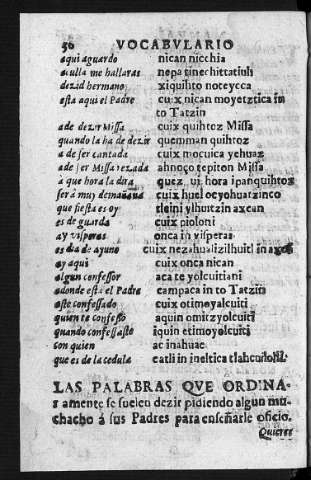 56 VOCABVLARIO
aqui aguardo nican nicchia
aculla me hallaras nepa tinechittatiuh
dezid hermano xiquihto noteycca
esta aqui el Padre cuix nican moyetztica in
to Tatzin
a de dezir Missa cuix quihtoz Missa
quando la ha de dezir quemman quihtoz
a de ser cantada cuix mocuica yehuaz
a de ser Missa rezada ahnoço tepiton Missa
á que hora la dira quez, in hora ipanquihtoz
será muy demañana cuix huel ocyohuatzinco
que fiesta es oy tleini ylhuitzin axcan
es de guarda cuix pieloni
ay visperas onca in visperas
es dia de ayuno cuix nezahualizilhuitl in axcã
ay aqui cuix onca nican
algun confessor aca te yolcuitiani
adonde está el Padre campaca in to Tatzin
aste confessado cuix otimoyalcuiti
quien te confessó aquin omitzyolcuiti
quando confessaste iquin etimoyolcuiti
con quien ac inahuac
que es de la cedula catli in ineltica tlahcuilolli
LAS PALABRAS QVE ORDINA-
riamente se suelen dezir pidiendo algun mu-
chacho á sus Padres para enseñarle oficio.
Quieres